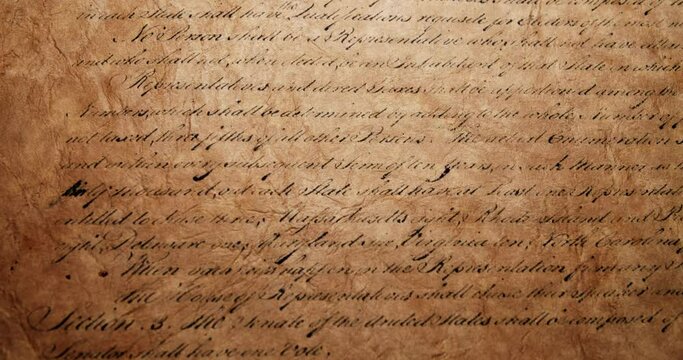 in each State shall have the Qualifications requisite for Electors of the most nu
No Person shall be a Representative who shall not have attain
and who shall not, when elected, be an Inhabitant of that State in which
Representatives and direct Taxes shall be apportioned among the
Numbers, which shall be determined by adding to the whole Number of
not taxed, three fifths of all other Persons. The actual Enumeration s
and within every subsequent Term of ten Years, in such Manner as th
thirty Thousand, but each State shall have at Least one Representati
entitled to chuse three, Massachusetts eight, Rhode Island and P
eight, Delaware one, Maryland six, Virginia ten, North Carolina
When vacancies happen in the Representation from any
The House of Representatives shall chuse their Speaker and
Section. 3. The Senate of the United States shall be composed of
Senator shall have one Vote.